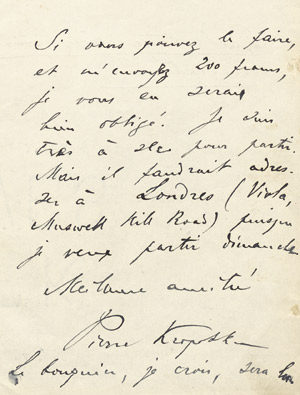 Si vous pouvez le faire,
et m'envoyez 200 francs,
je vous en serais
bien obligé. Je suis
très à sec pour partir.
Mais il faudrait adres-
ser à Londres (Viola,
Muswell Hill Road) puisque
je veux partir dimanche
Meilleure amitié
Pierre Kropotkine
Le bouquin, je crois, sera bon